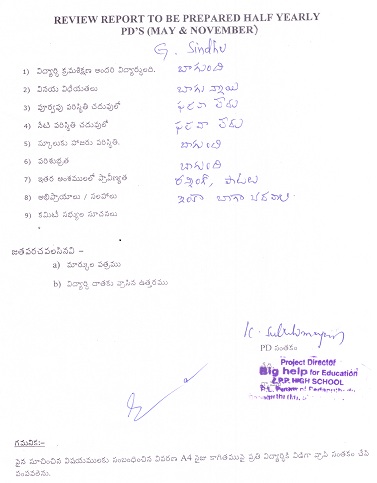 REVIEW REPORT TO BE PREPARED HALF YEARLY
PD'S (MAY & NOVEMBER)
G. Sindhu
1) విద్యార్థి క్రమశిక్షణ అందరి విద్యార్థులది. బాగుంది
2) వినయ విధేయతలు బాగు న్నాయి
3) పూర్వపు పరిస్థితి చదువులో ఫరవా లేదు
4) నేటి పరిస్థితి చదువులో ఫరవా లేదు
5) స్కూలుకు హాజరు పరిస్థితి. బాగుంది
6) పరిశుభ్రత బాగుంది
7) ఇతర అంశములలో ప్రావీణ్యత రన్నింగ్, పాటలు
8) అభిప్రాయాలు / సలహాలు ఇంకా బాగా చదవాలి
9) కమిటీ సభ్యుల సూచనలు
జతపరచవలసినవి –
a) మార్కుల పత్రము
b) విద్యార్థి దాతకు వ్రాసిన ఉత్తరము
PD సంతకం
Project Director
Big help for Education
Z.P.P. HIGH SCHOOL
గమనిక:-
పైన సూచించిన విషయములకు సంబంధించిన వివరణ A4 సైజు కాగితముపై ప్రతి విద్యార్థికి విడిగా వ్రాసి సంతకం చేసి
పంపవలెను.